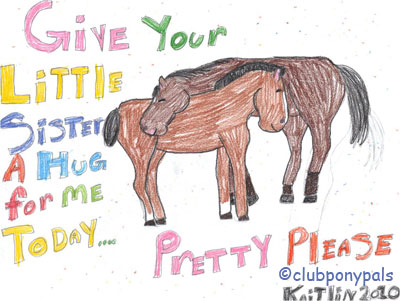 GIVE YOUR
LITTLE
SISTER
A HUG
for ME
TODAY....
PRETTY PLEASE
©clubponypals
KaiTlin 2010